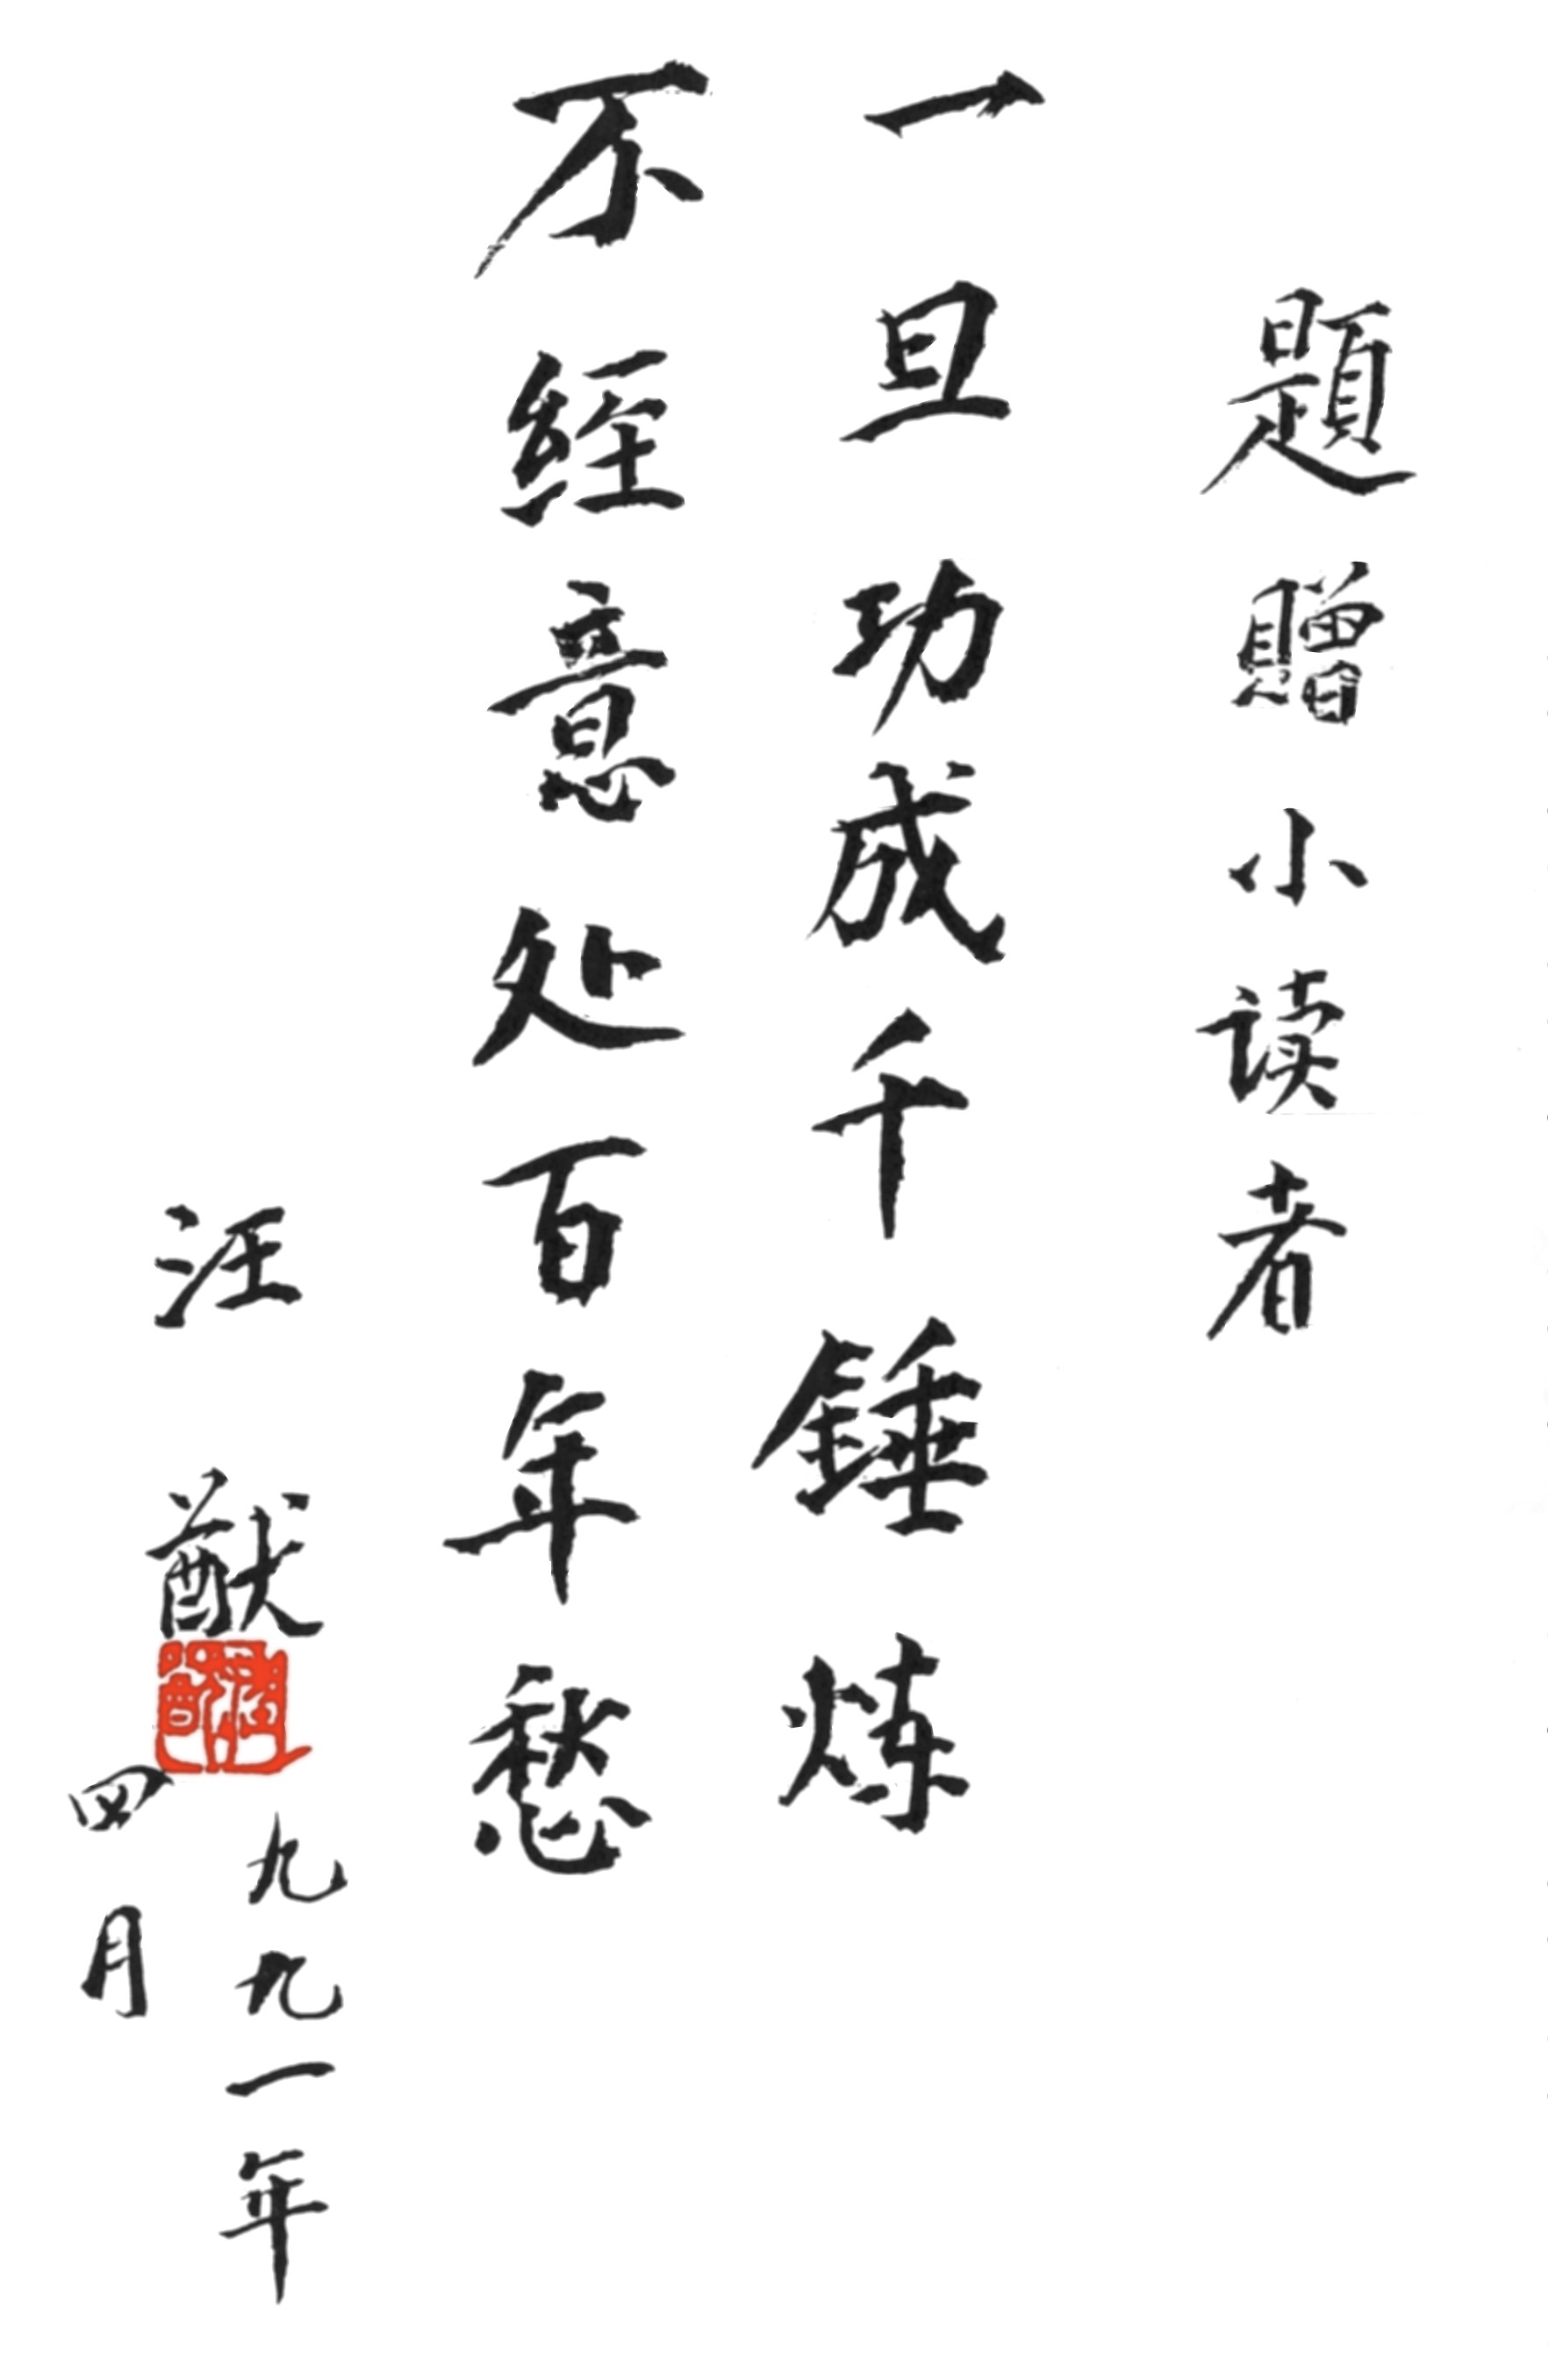 題贈小读者
一旦功成千錘炼
不経意处百年愁
汪猷
九九一年
四月